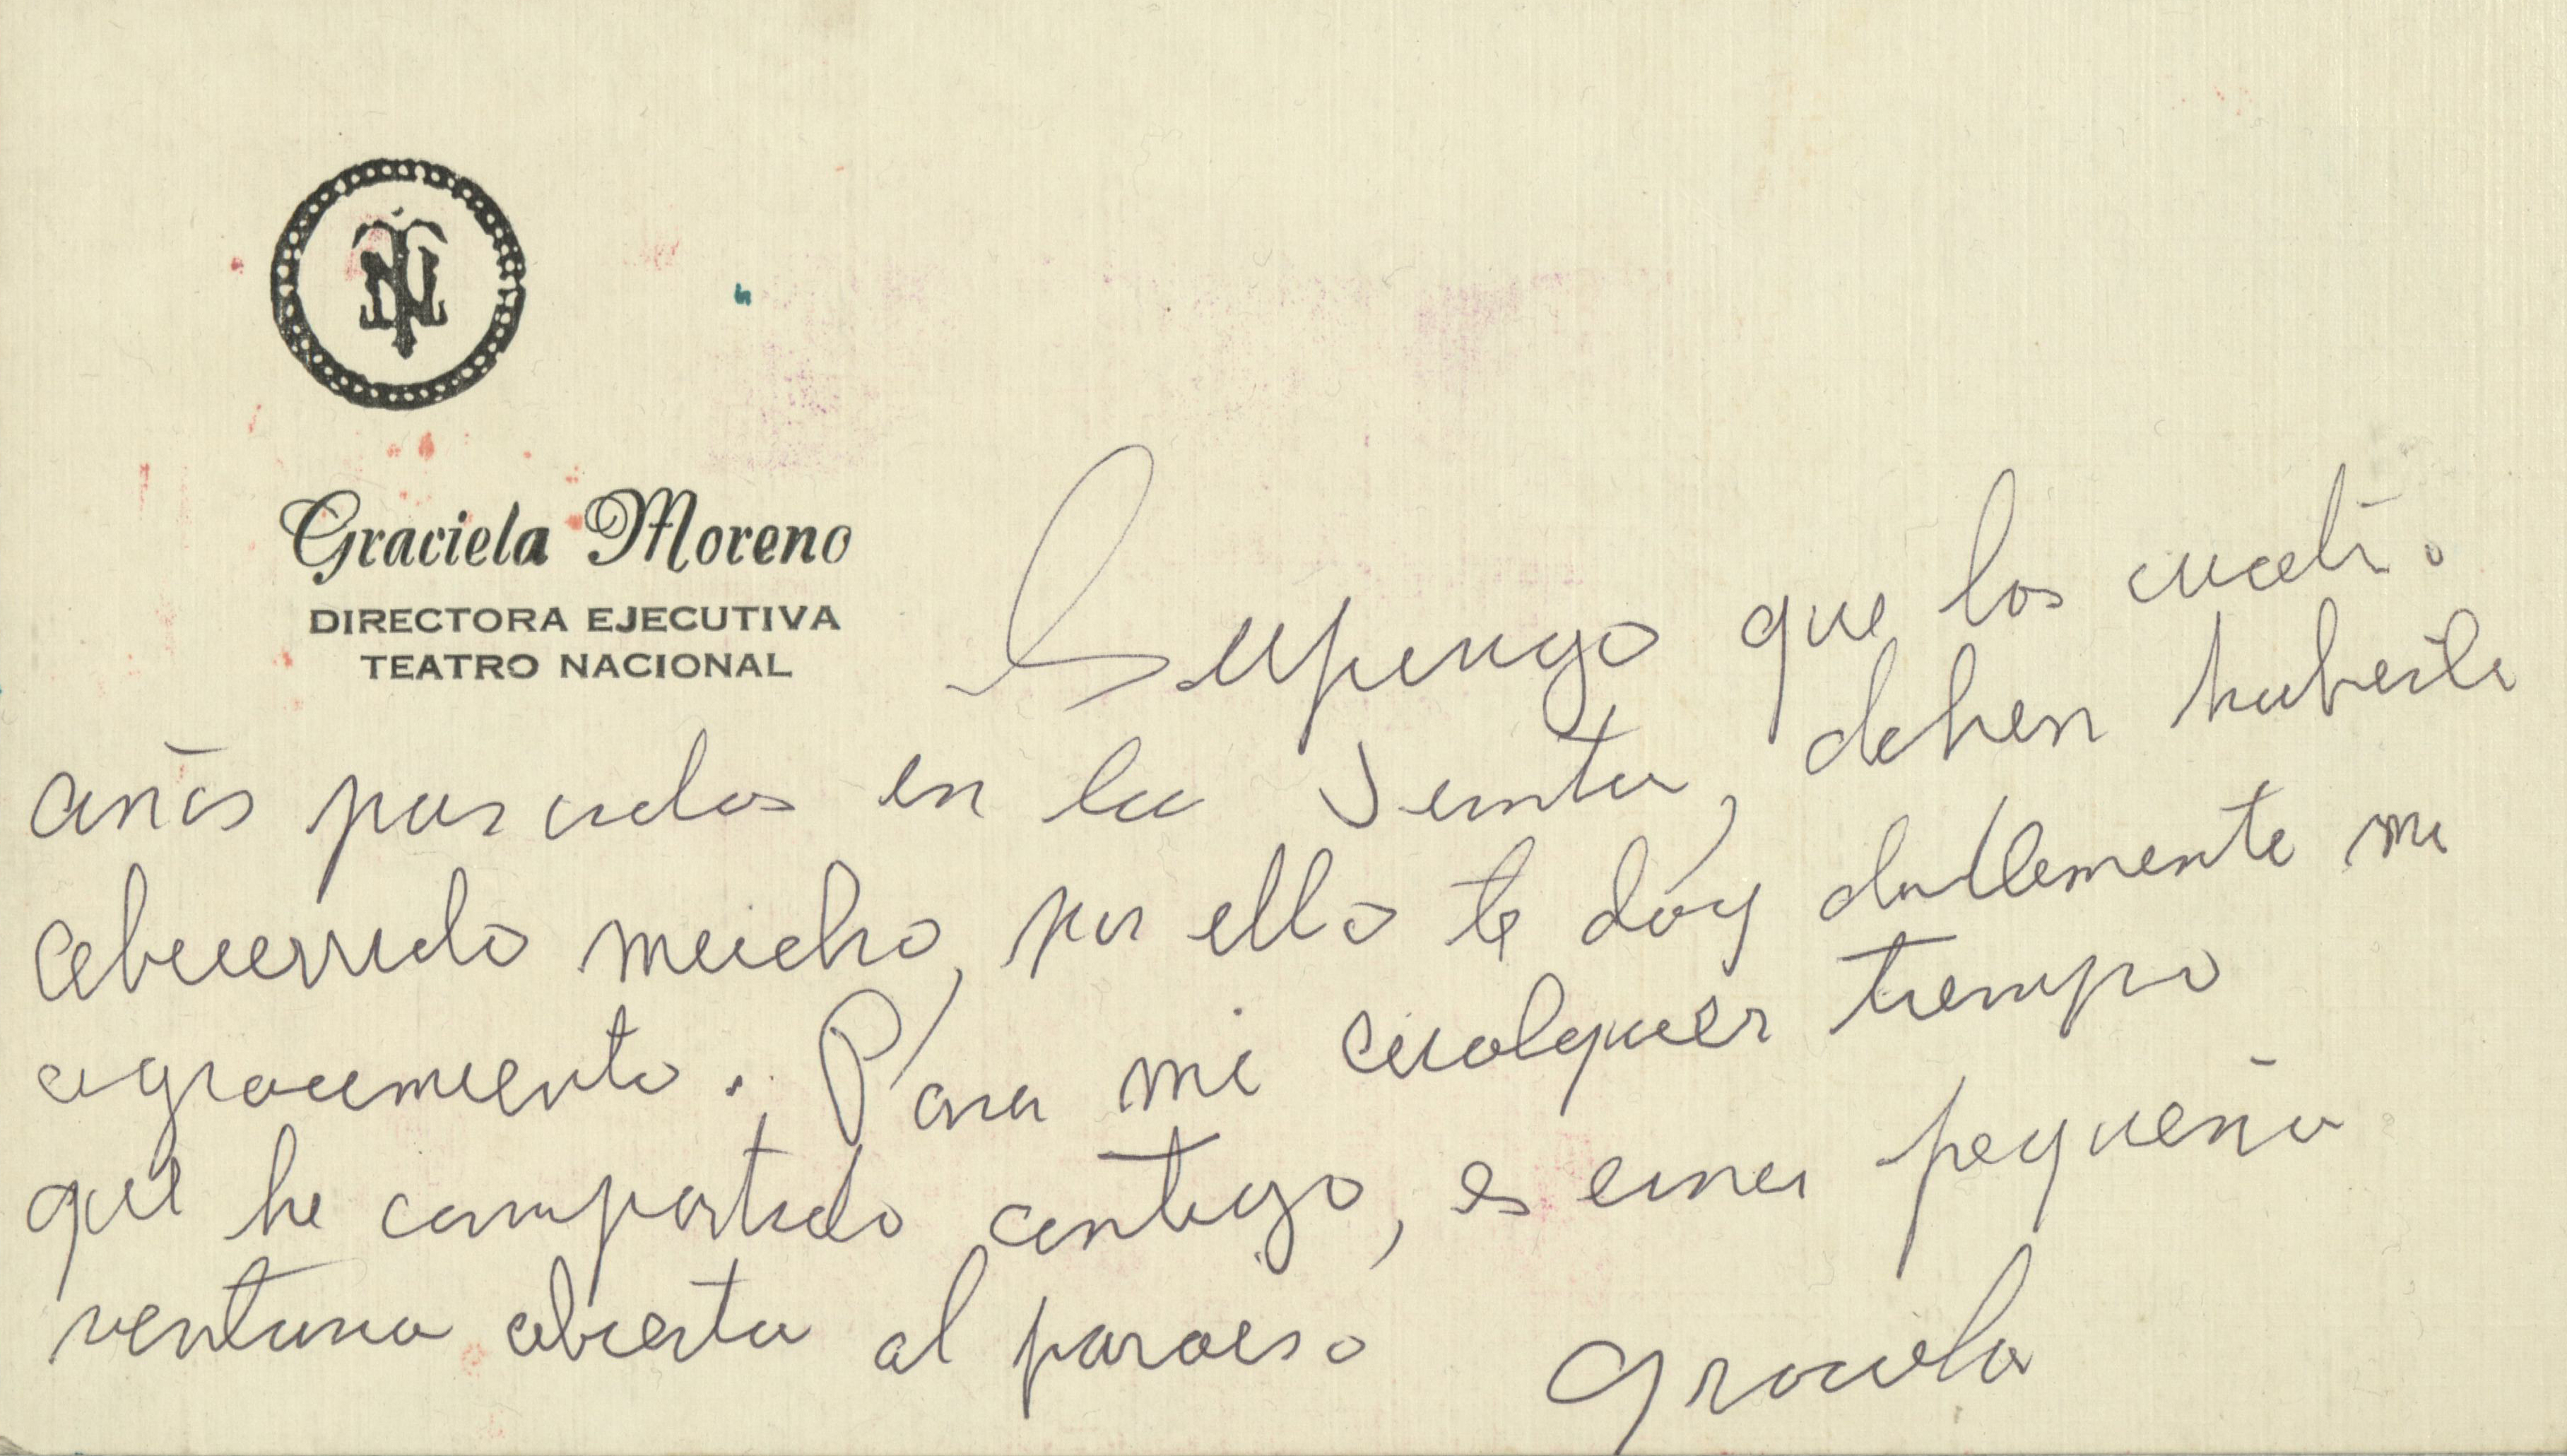 Graciela Moreno
DIRECTORA EJECUTIVA
TEATRO NACIONAL
Supongo que los cuatro
años pasados en la Junta, deben haberte
aburrido mucho, por ello te doy doblemente mi
agracimiento. Para mi cualquier tiempo
que he compartido contigo, es una pequeña
ventana abierta al paraiso
Graciela